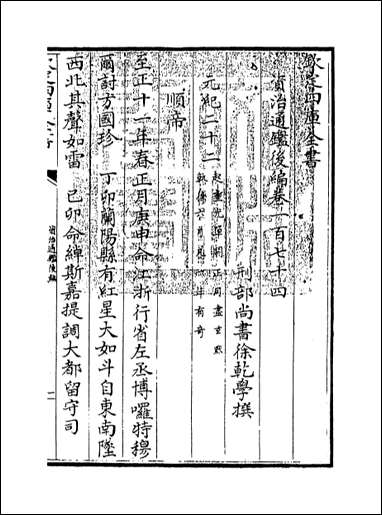 欽定四庫全書
資治通鑑後編卷一百七十四
刑部尚書徐乾學撰
元紀二十二 起重光單閼正月盡玄黓
執徐六月凡一年有奇
順帝
至正十一年春正月庚申命江浙行省左丞博囉特穆
爾討方國珍 丁卯蘭陽縣有紅星大如斗自東南墜
西北其聲如雷 己卯命綽斯嘉提調大都留守司
資治通鑑後編
一